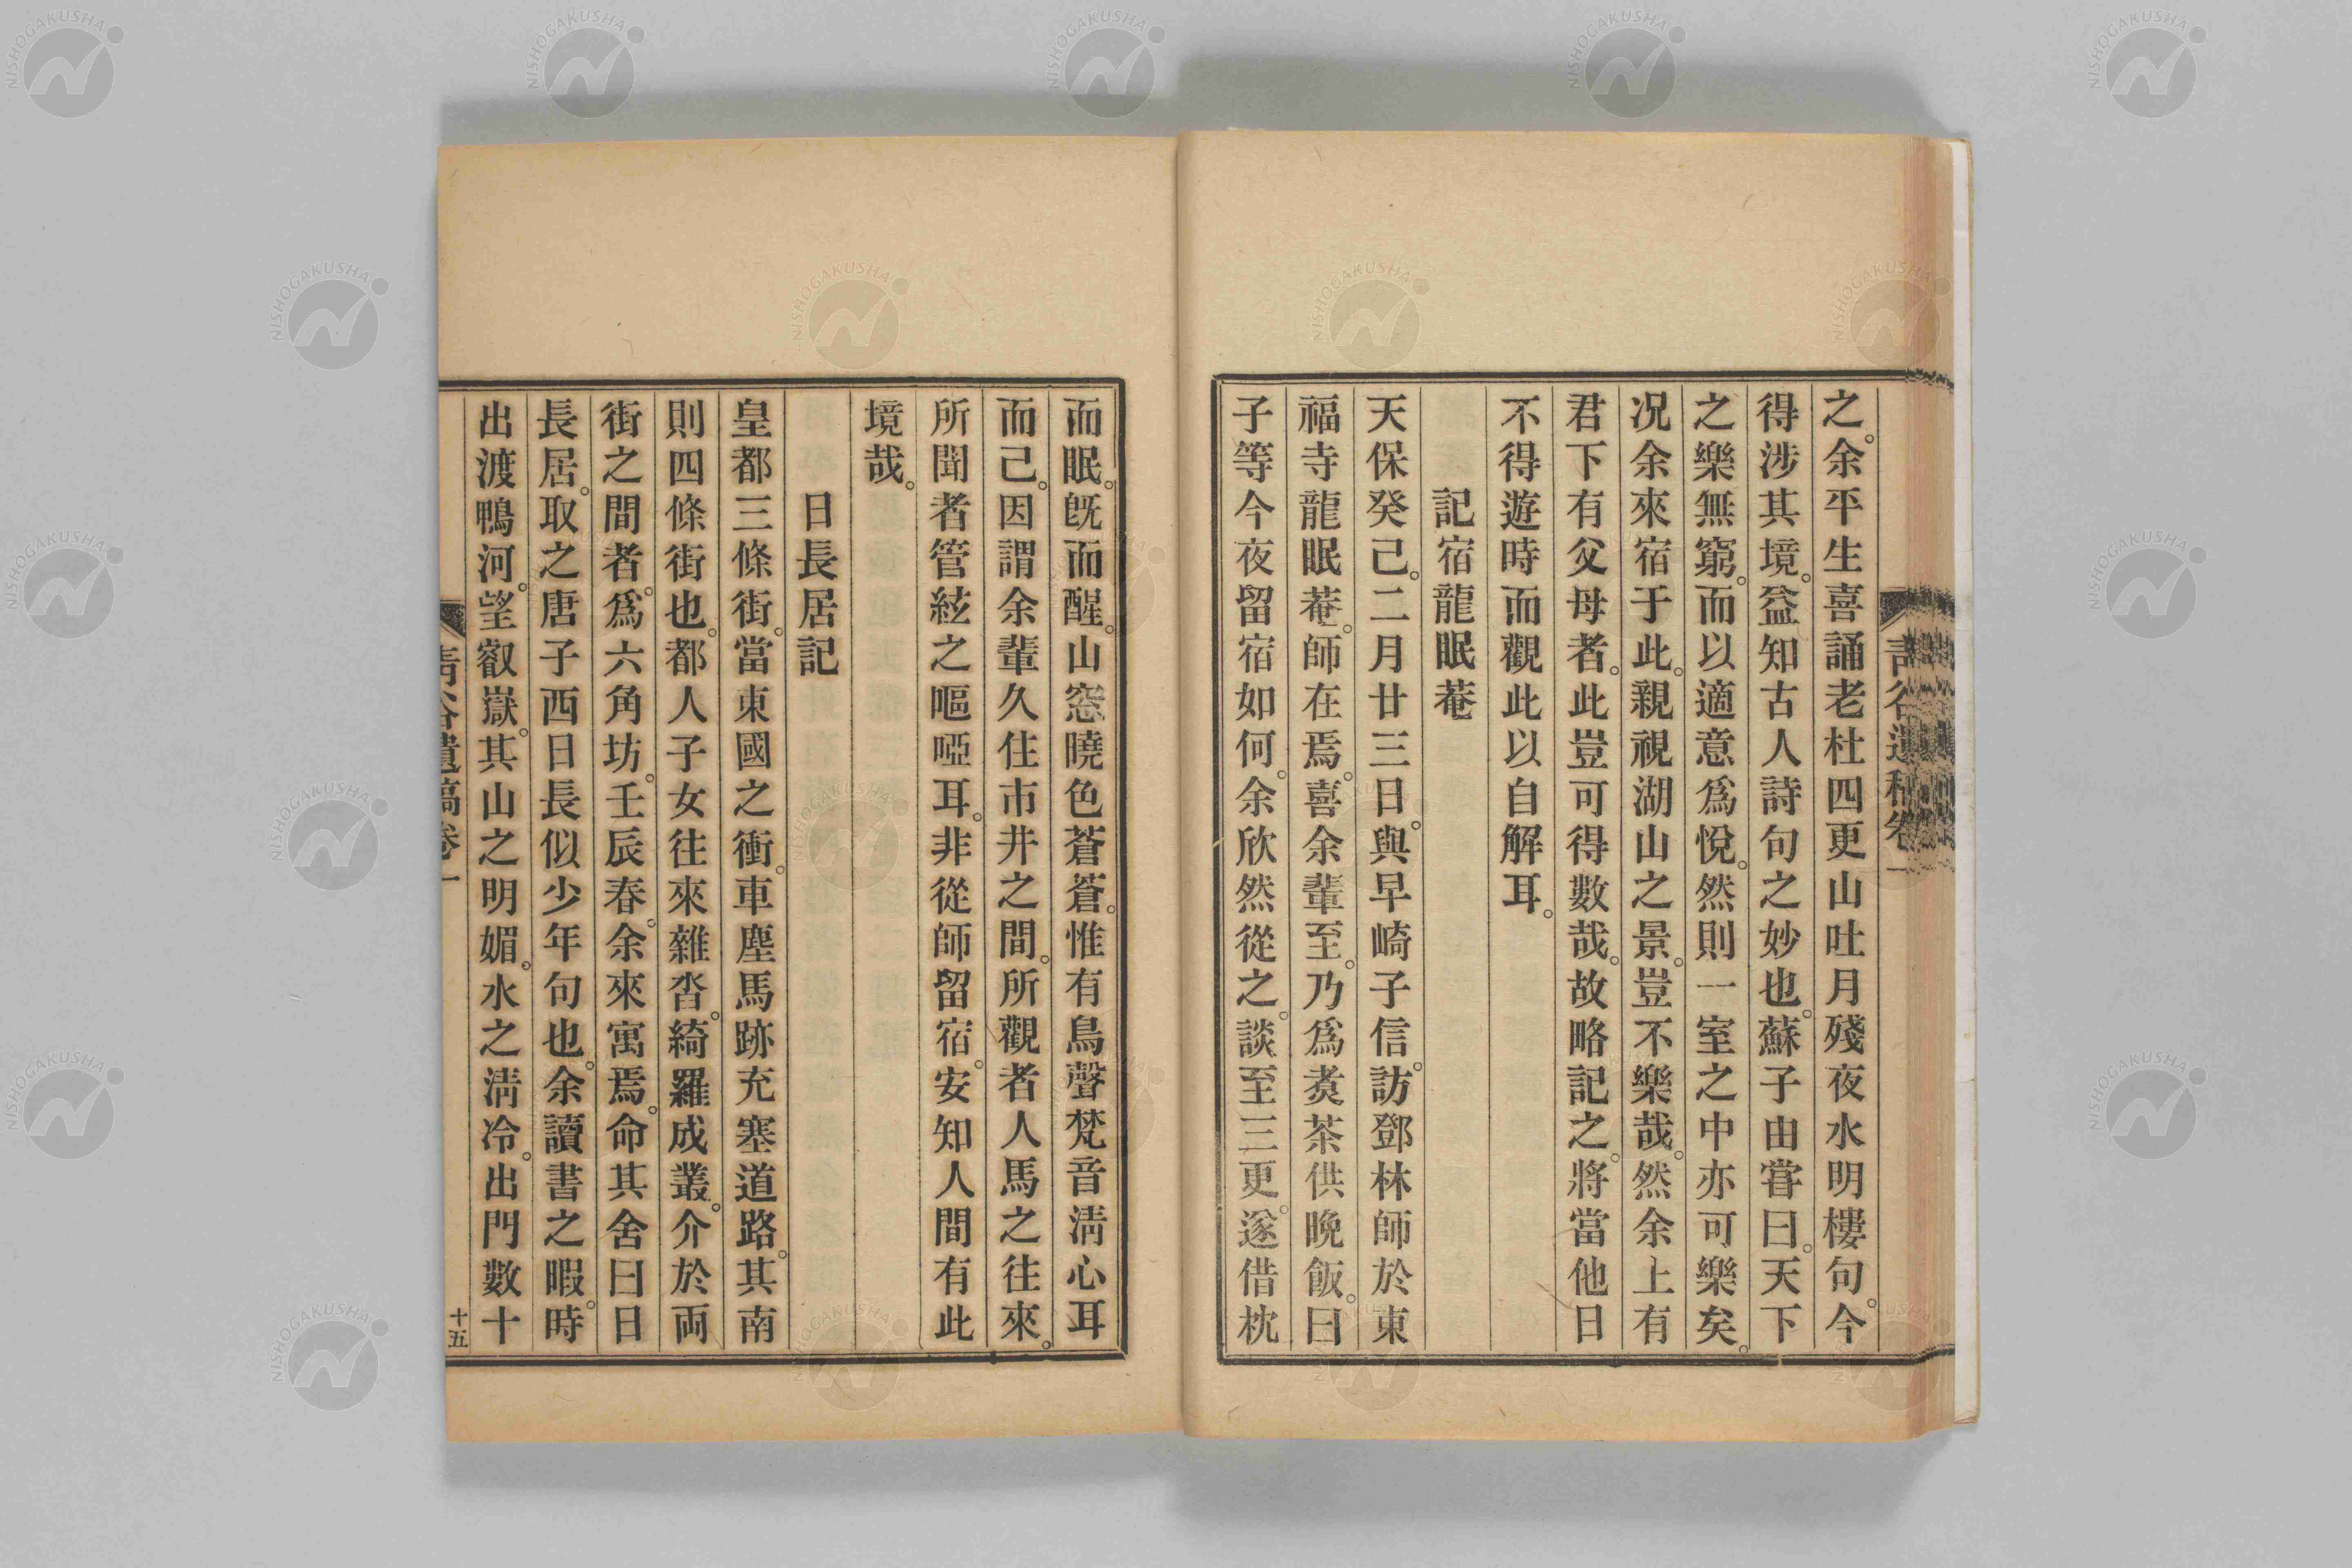 之。余平生喜誦老杜四更山吐月殘夜水明樓句。今
得涉其境。益知古人詩句之妙也。蘇子由嘗曰。天下
之樂無窮。而以適意爲悅。然則一室之中亦可樂矣。
况余來宿于此。親視湖山之景。豈不樂哉。然余上有
君下有父母者。此豈可得數哉。故略記之。將當他日
不得遊時而觀此以自解耳。
記宿龍眠菴
天保癸己。二月廿三日。與早崎子信。訪鄧林師於東
福寺龍眠菴。師在焉。喜余輩至。乃爲煑茶供晚飯。曰
子等今夜留宿如何。余欣然從之。談至三更。遂借枕
而眠。旣而醒。山窓曉色蒼蒼。惟有鳥聲梵音淸心耳
而己。因謂余輩久住市井之間。所觀者人馬之往來。
所聞者管絃之嘔啞耳。非從師留宿。安知人間有此
境哉。
日長居記
皇都三條街。當東國之衝。車塵馬跡充塞道路。其南
則四條街也。都人子女往來雜沓。綺羅成叢。介於両
街之間者。爲六角坊。壬辰春。余來寓焉。命其舍曰日
長居。取之唐子西日長似少年句也。余讀書之暇。時
出渡鴨河。望叡嶽。其山之明媚。水之淸冷。出門數十
靑谷遺稿卷一
十五
NISHOGAKUSHA